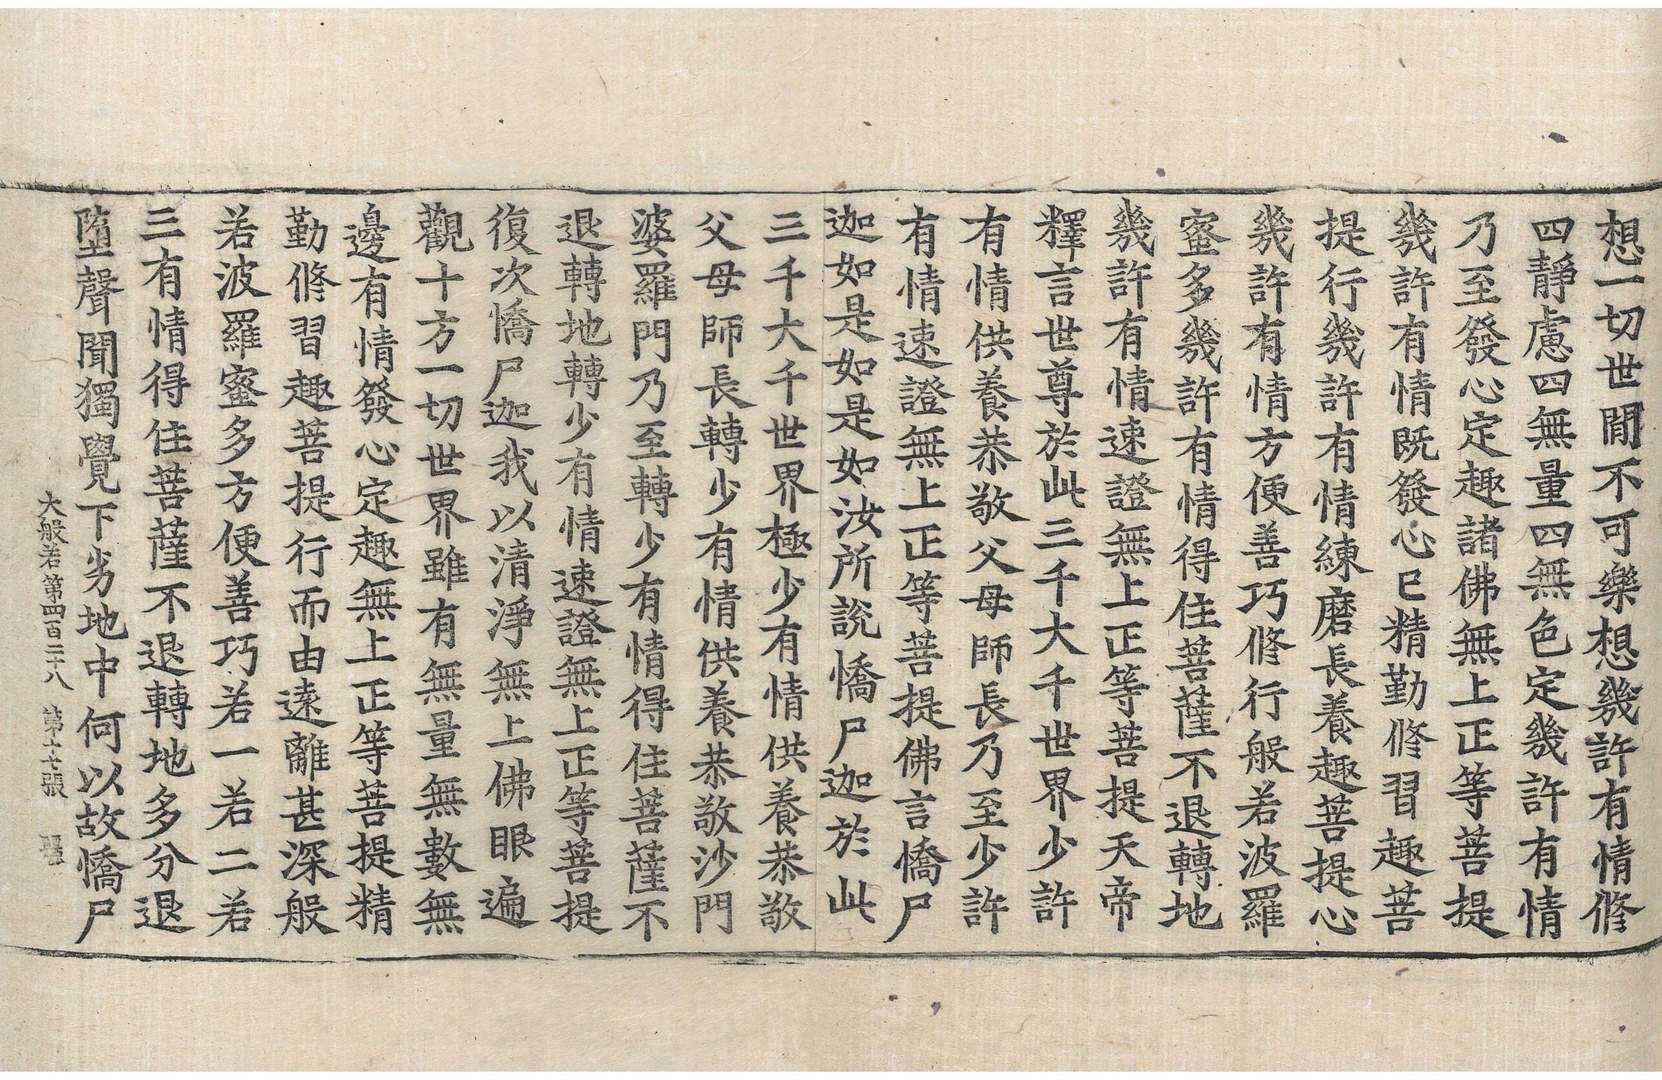 想一切世閒不可樂想幾許有情修
四靜慮四無量四無色定幾許有情
乃至發心定趣諸佛無上正等菩提
幾許有情既發心已精勤修習趣菩
提行幾許有情練磨長養趣菩提心
幾許有情方便善巧修行般若波羅
蜜多幾許有情得住菩薩不退轉地
幾許有情速證無上正等菩提天帝
釋言世尊於此三千大千世界少許
有情供養恭敬父母師長乃至少許
有情速證無上正等菩提佛言憍尸
迦如是如是如汝所說憍尸迦於此
三千大千世界極少有情供養恭敬
父母師長轉少有情供養恭敬沙門
婆羅門乃至轉少有情得住菩薩不
退轉地轉少有情速證無上正等菩提
復次憍尸迦我以清淨無上佛眼遍
觀十方一切世界雖有無量無數無
邊有情發心定趣無上正等菩提精
勤修習趣菩提行而由遠離甚深般
若波羅蜜多方便善巧若一若二若
三有情得住菩薩不退轉地多分退
墮聲聞獨覺下劣地中何以故憍尸
大般若第四百二十八 第十七張